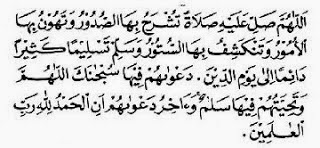 اَللّٰهُمَّ صَلِّ عَلَيْهِ صَلَاةً تُشْرَحُ بِهَا الصُّدُوْرُ وَتَهُوْنُ بِهَا
الْاُمُوْرُ وَتَنْكَشِفُ بِهَا السُّتُوْرُ وَسَلِّمْ تَسْلِيْمًا كَثِيْرًا
دَائِمًا اِلٰى يَوْمِ الدِّيْنِ . دَعْوٰىهُمْ فِيْهَا سُبْحٰنَكَ اللّٰهُمَّ
وَتَحِيَّتُهُمْ فِيْهَا سَلٰمٌ وَءَاخِرُ دَعْوٰىهُمْ اَنِ الْحَمْدُ لِلّٰهِ رَبِّ
الْعٰلَمِيْنَ .